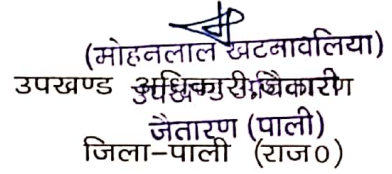 (मोहनलाल खटनावलिया)
उपखण्ड अधिकारी
जैतारण (पाली)
जिला-पाली (राज0)